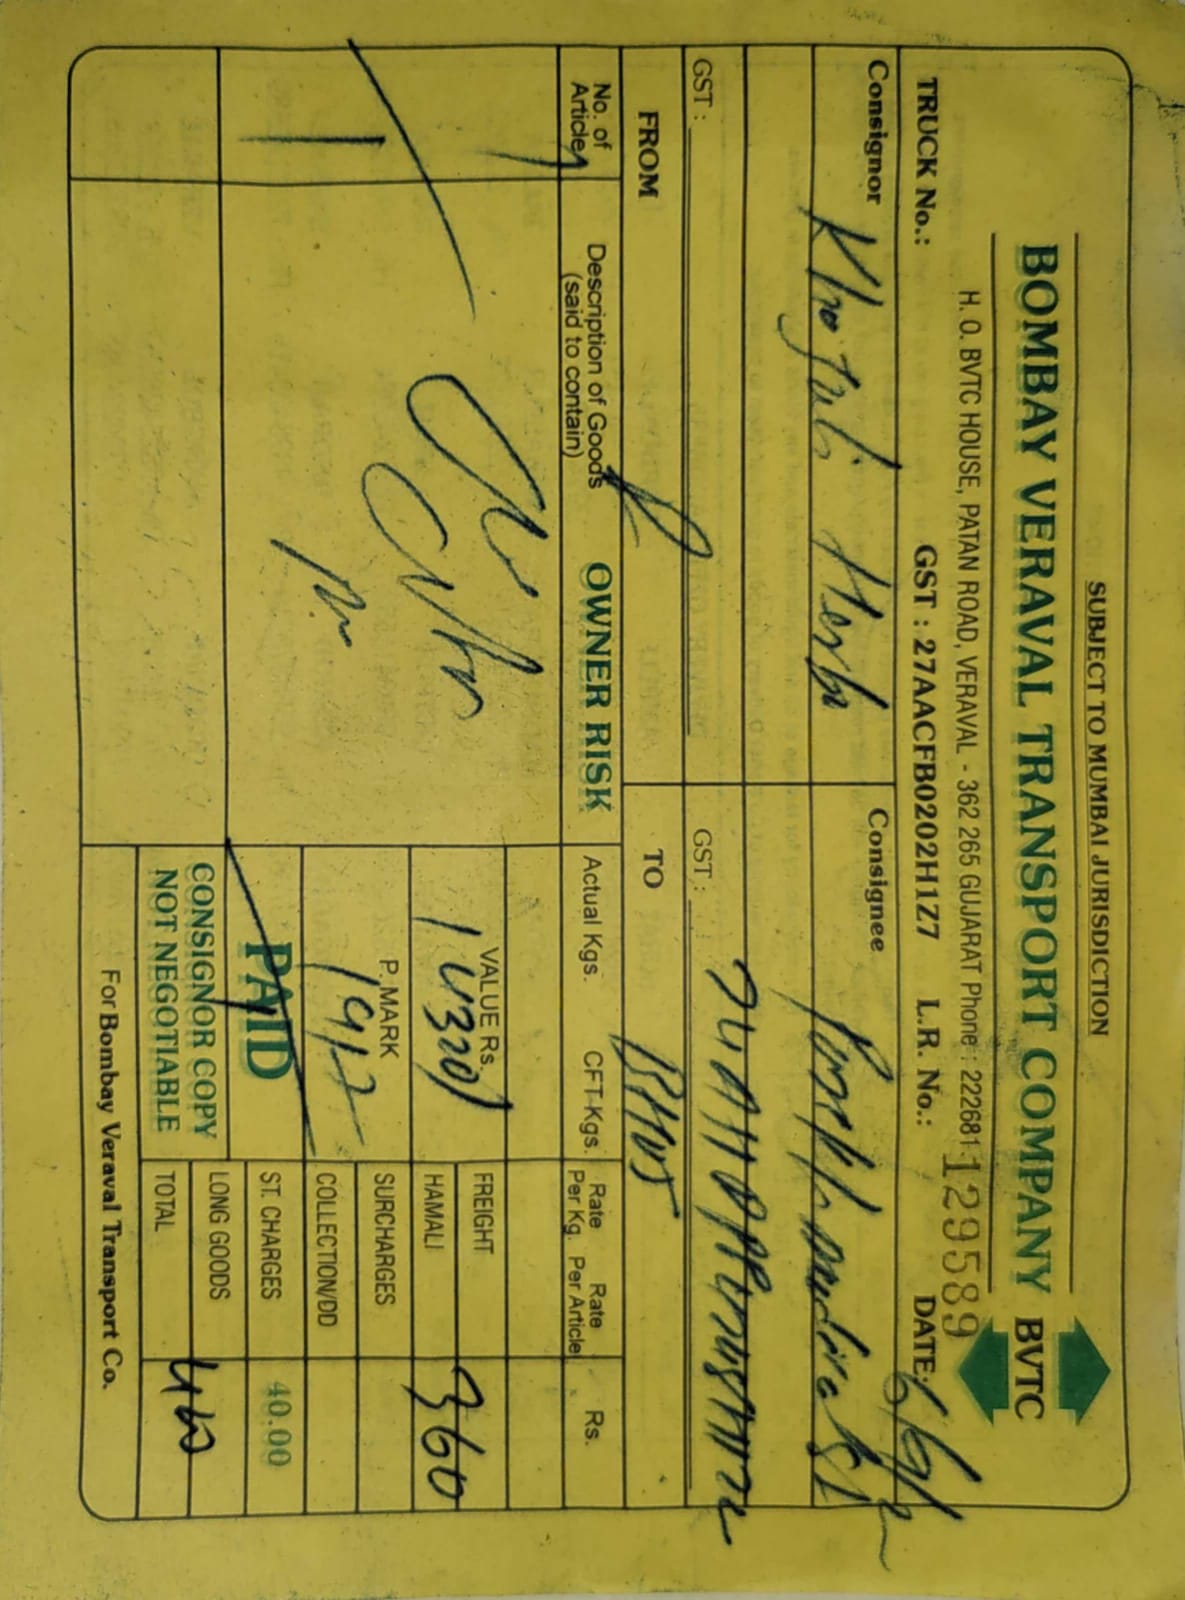 SUBJECT TO MUMBAI JURISDICTION
BOMBAY VERAVAL TRANSPORT COMPANY BVTC
H. O. BVTC HOUSE, PATAN ROAD, VERAVAL - 362 265 GUJARAT Phone : 222681
129589
TRUCK No.: GST : 27AACFB0202H1Z7 L.R. No.: DATE: 6/6/
Consignor Consignee
Herb
GST : GST :
FROM TO
No. of Article Description of Goods (said to contain) OWNER RISK Actual Kgs. CFT-Kgs. Rate Per Kg. Rate Per Article Rs.
1
VALUE Rs. 14320/
FREIGHT
HAMALI 360
P. MARK 1912
SURCHARGES
COLLECTION/DD
PAID
ST. CHARGES 40.00
CONSIGNOR COPY
NOT NEGOTIABLE
LONG GOODS
TOTAL 400
For Bombay Veraval Transport Co.